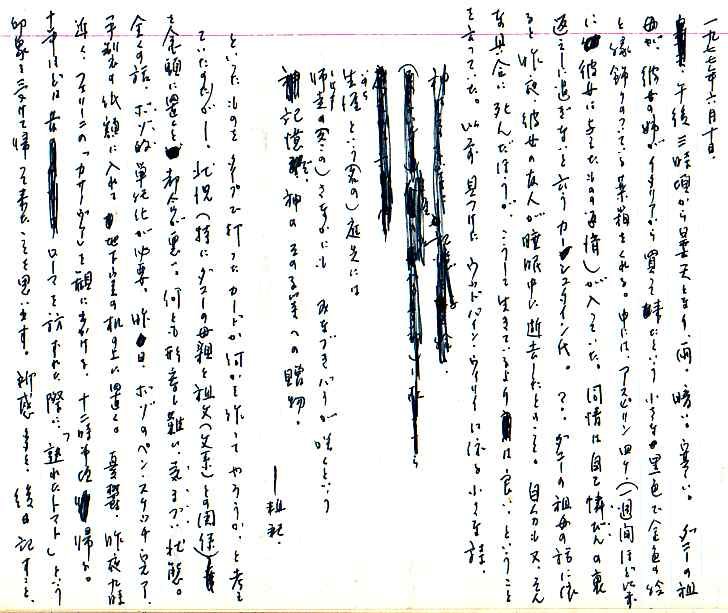 一九七七年六月十日.
午後三時頃から曇天となり、雨、暗い。寒い。ダニーの祖
母が、彼女の姉がイタリアから買って来たという小さな黒色で金色の絵
と縁飾りのついている薬箱をくれる。中には、アスピリン四ケ(一週間ほど前
に彼女に与えたものの同情)が入っていた。同情は自己憐びんの裏
返えしに過ぎないと言うカーンスタイン氏。ダニーの祖母の話に依
ると昨夜、彼女の友人が睡眠中に逝去したとのこと。自分も又、そん
な具合に死んだほうが、こうして生きているよりは良い、ということ
を言っていた。以前見つけたウッドバイン・ウィリーに依る小さな詩.
生涯という客の)庭先には
師走の客の)さなかにも みなづきバラが咲くという
記憶 神のその子等への贈物.
―拙訳.
といったものをタイプで打ったカードか何かを作ってやろうか、と考え
ていたのだが―. 状況(特にダニーの母親と祖父(父系)との関係)
を念頭に置くと 何とも形容し難い、気まづい状態。
全くの話、ボゾ的単純化が必要。昨日、ボゾのペン・スケッチ完了.
地下室の机の上に置く。昨夜九時
近く、フェリーニの「カサノヴァ」を観に出かけ、十二時半頃帰る。
ローマを訪ずれた際に、「熟れたトマト」という
印象を受けて帰って来たことを思い出す。所感など、後日記すこと.